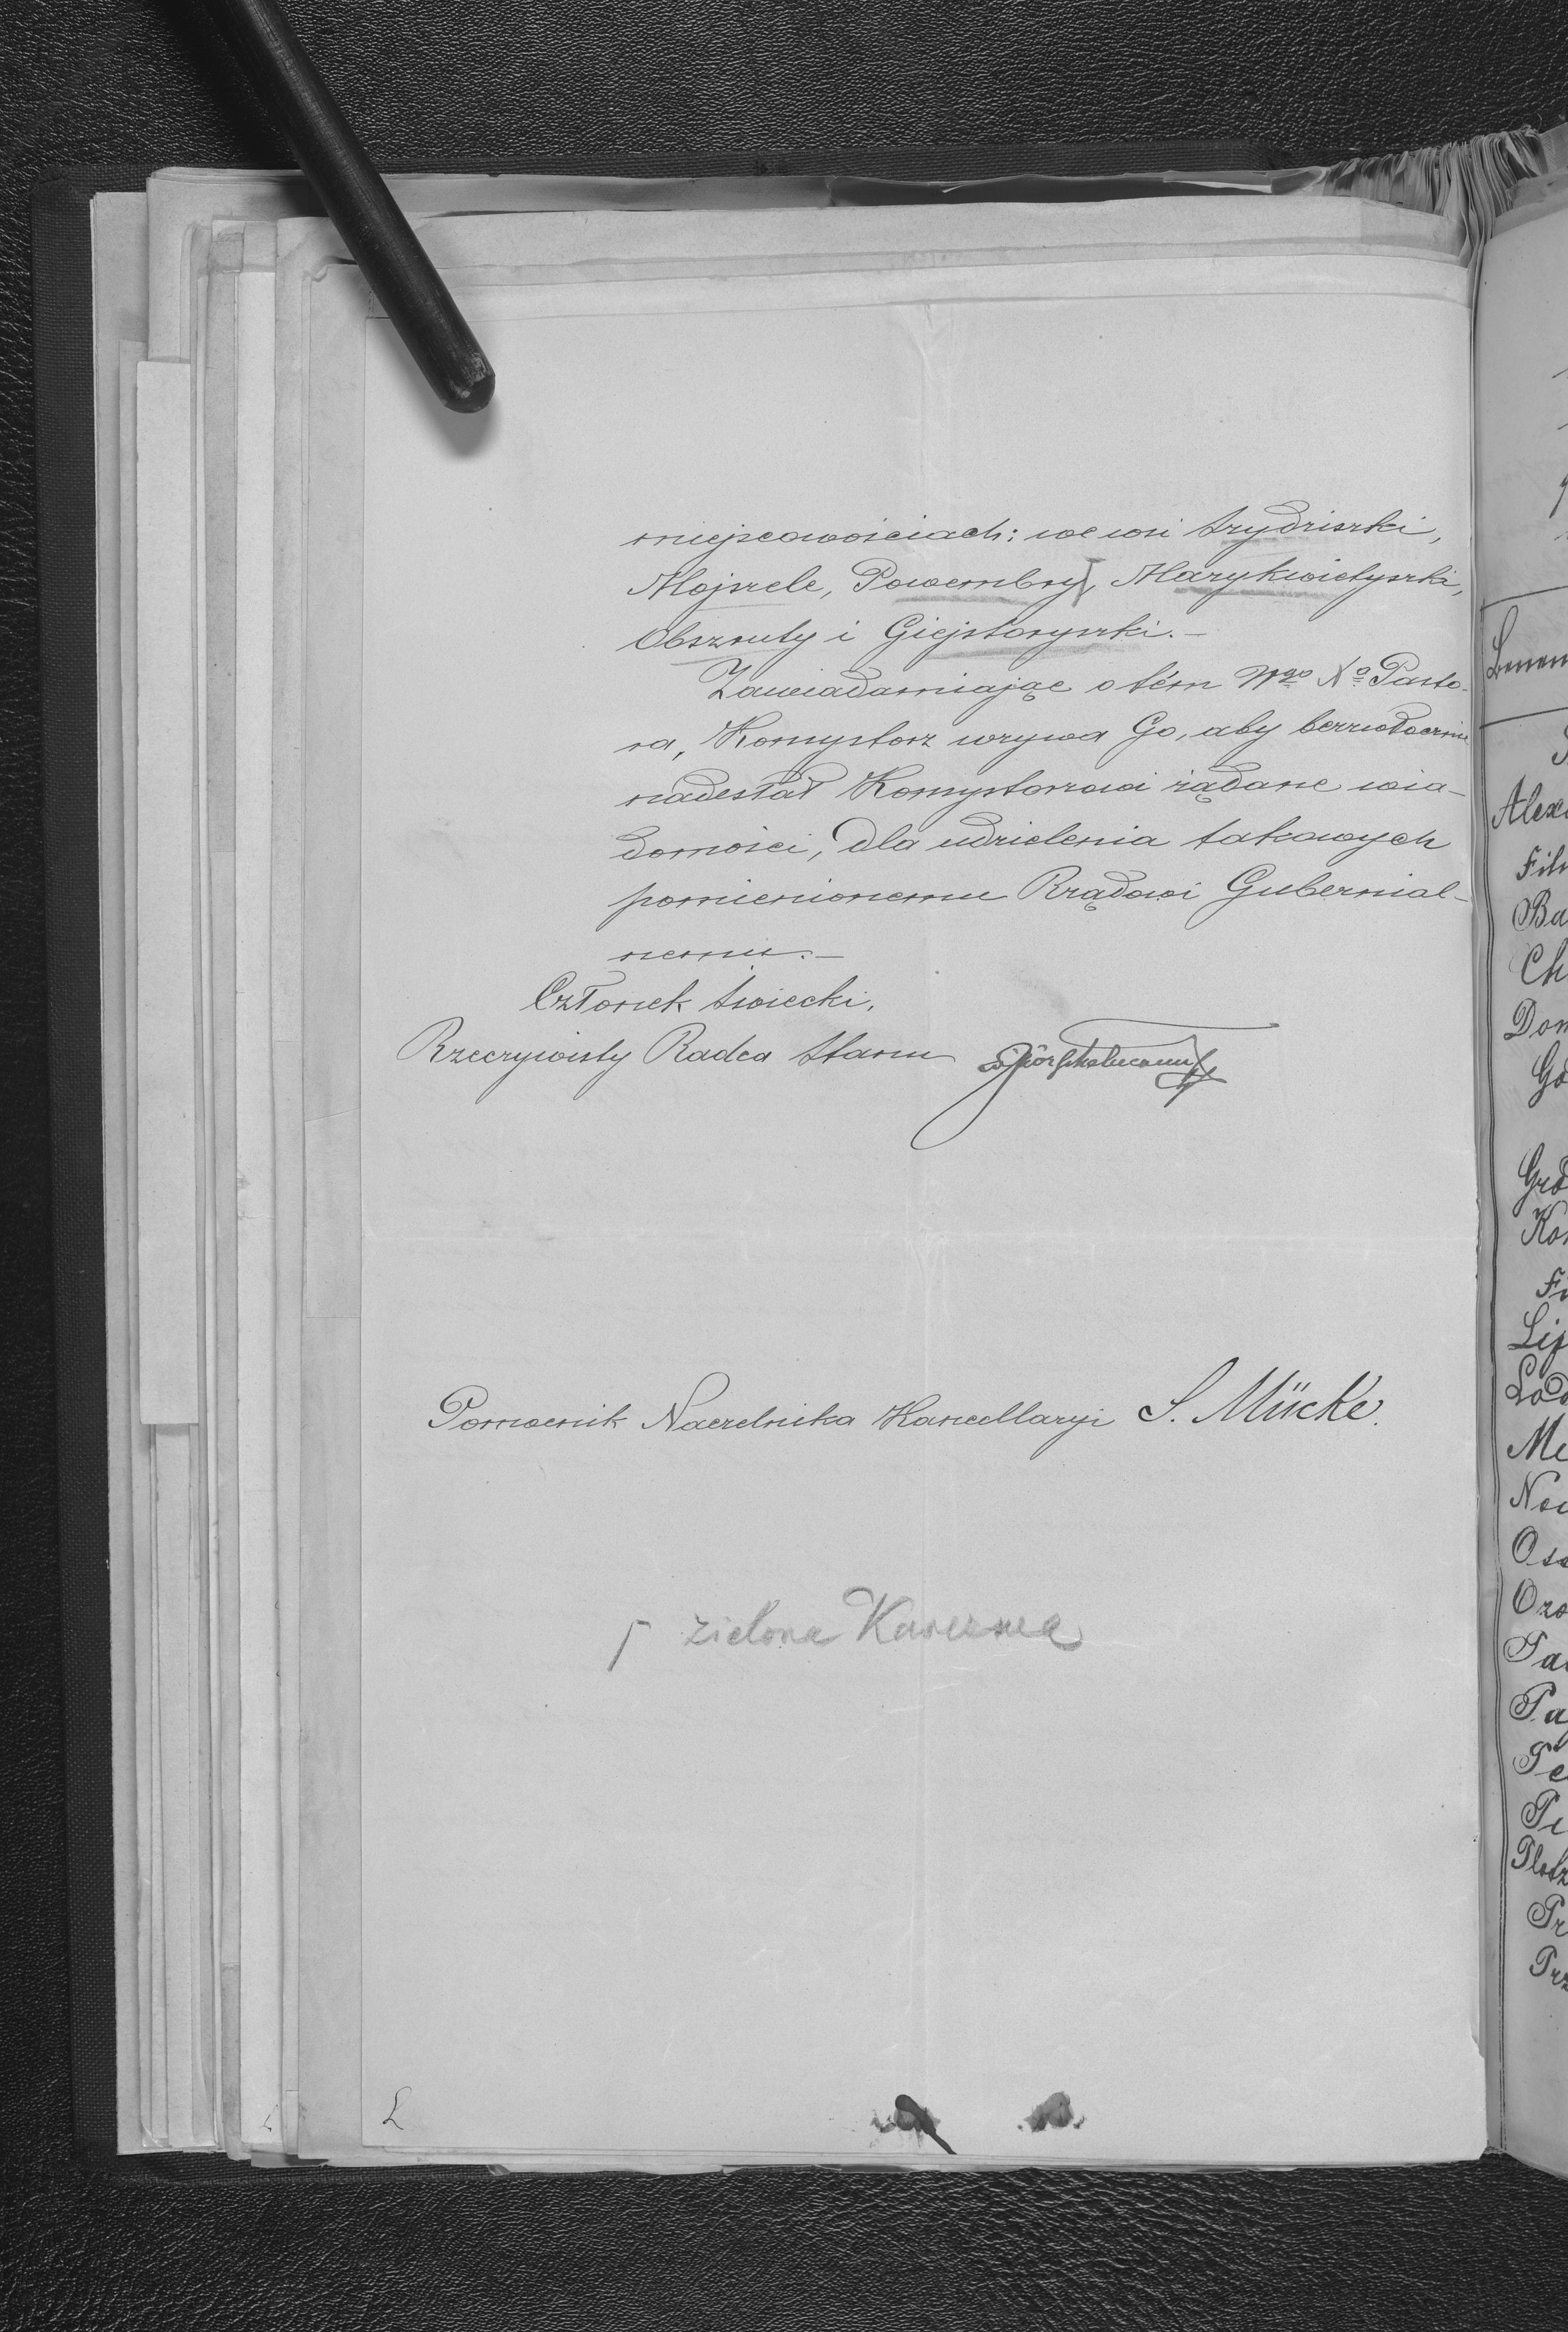 miejscowościach: we wsi Szydziszki,
Mojszele, Powembry, Marykwietyszki,
Obszruty i Giejstoryszki.—
Zawiadamiając o tém Wgo Xº Pasto-
ra, Konsystorz wzywa Go, aby bezzwłocznie
nadesłał Konsystorzowi żądane wia-
domości, dla udzielenia takowych
pomienionemu Rządowi Gubernial-
nemu.—
Członek Świecki,
Rzeczywisty Radca Stanu
Pomocnik Naczelnika Kancellaryi S. Mücke.
Γ zielona Karczma
L
Alex
Fil
Ba
Ch
Dom
Go
Grod
Kon
Lip
Lod
Me
Now
Oso
Ozo
Pa
Pa
Pe
Pi
Plotz
Pr
Prz